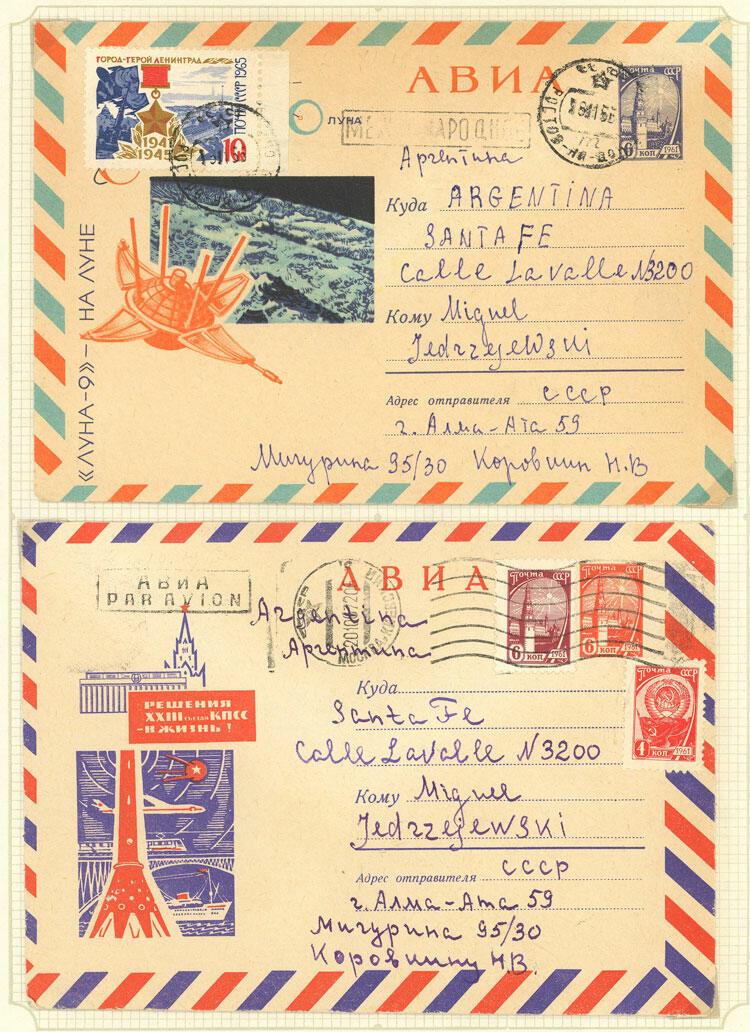 ГОРОД-ГЕРОЙ ЛЕНИНГРАД
1941
1945
10
ПОЧТА СССР 1965
АВИА
ЛУНА
МЕЖДУНАРОДНОЕ
ПОЧТА СССР
6 КОП 1961
Аргентина
Куда ARGENTINA
SANTA FE
Calle Lavalle N3200
Кому Miguel
Jedrzejewski
Адрес отправителя СССР
г. Алма-Ата 59
Мичурина 95/30 Коровин Н.В
«ЛУНА-9» – НА ЛУНЕ
АВИА
PAR AVION
АВИА
ПОЧТА СССР
6 КОП 1961
ПОЧТА СССР
6 КОП 1961
Аргентина
Аргентина
МОСКВА
ПОЧТА СССР
4 КОП 1961
РЕШЕНИЯ
XXIII съезда КПСС
-В ЖИЗНЬ!
Куда
Santa Fe
Calle Lavalle N 3200
Кому Miguel
Jedrzejewski
Адрес отправителя СССР
г. Алма-Ата 59
Мичурина 95/30
Коровину Н.В.